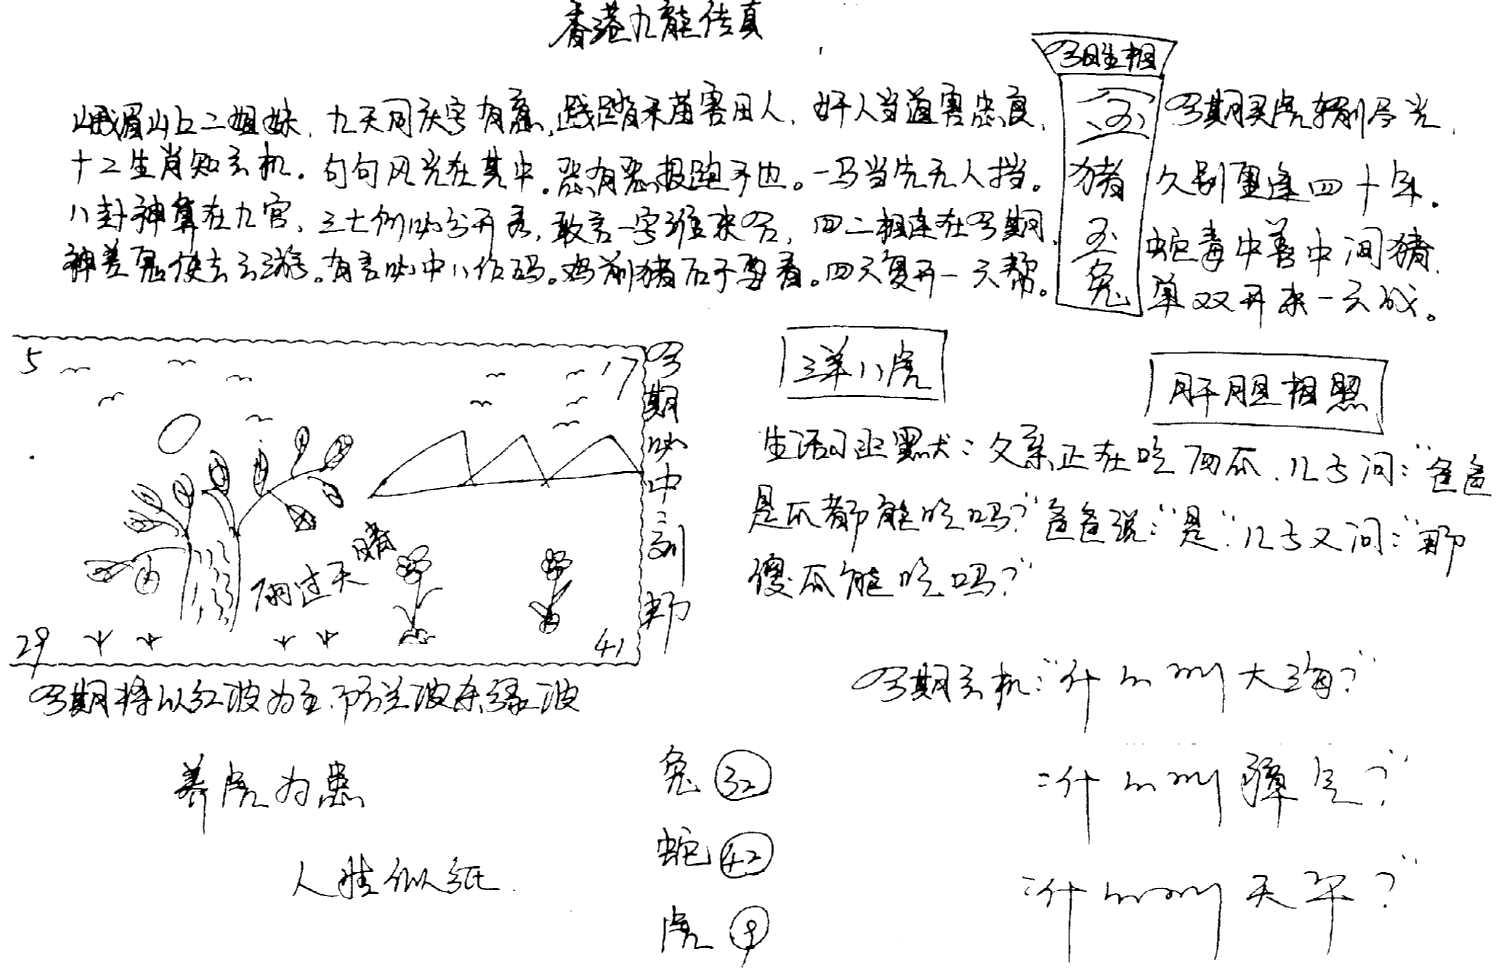 香港九龍传真
今期生相
峨眉山上二姐妹，九天同庆字有意，践踏禾苗害田人，奸人当道害忠良，
十二生肖知玄机。句句风光在其中。恶有恶报跑不也。一马当先无人挡。
八卦神算在九宫，三七例必分开看，敢言一字谁来否，四二相连在今期，
神差鬼使去云游。有言必中八作码。鸡前猪后于再看。四六复开一六帮。
五
猪
五
兔
今期买虎输利尽光，
久别重逢四十年。
蛇毒中善中间猪，
单双开来一六战。
5
17
雨过天晴
29
41
今期必中一剖那
今期将以红波为主，防兰波杀绿波
养虎为患
人性似纸
兔 32
蛇 42
虎 9
三羊八虎
肝胆相照
生活幽默：父亲正在吃西瓜，儿子问：“爸爸
是瓜都能吃吗？”爸爸说：“是”，儿子又问：“那
傻瓜能吃吗？”
今期玄机：“什么叫大海？”
：“什么叫 空？”
：“什么叫天平？”